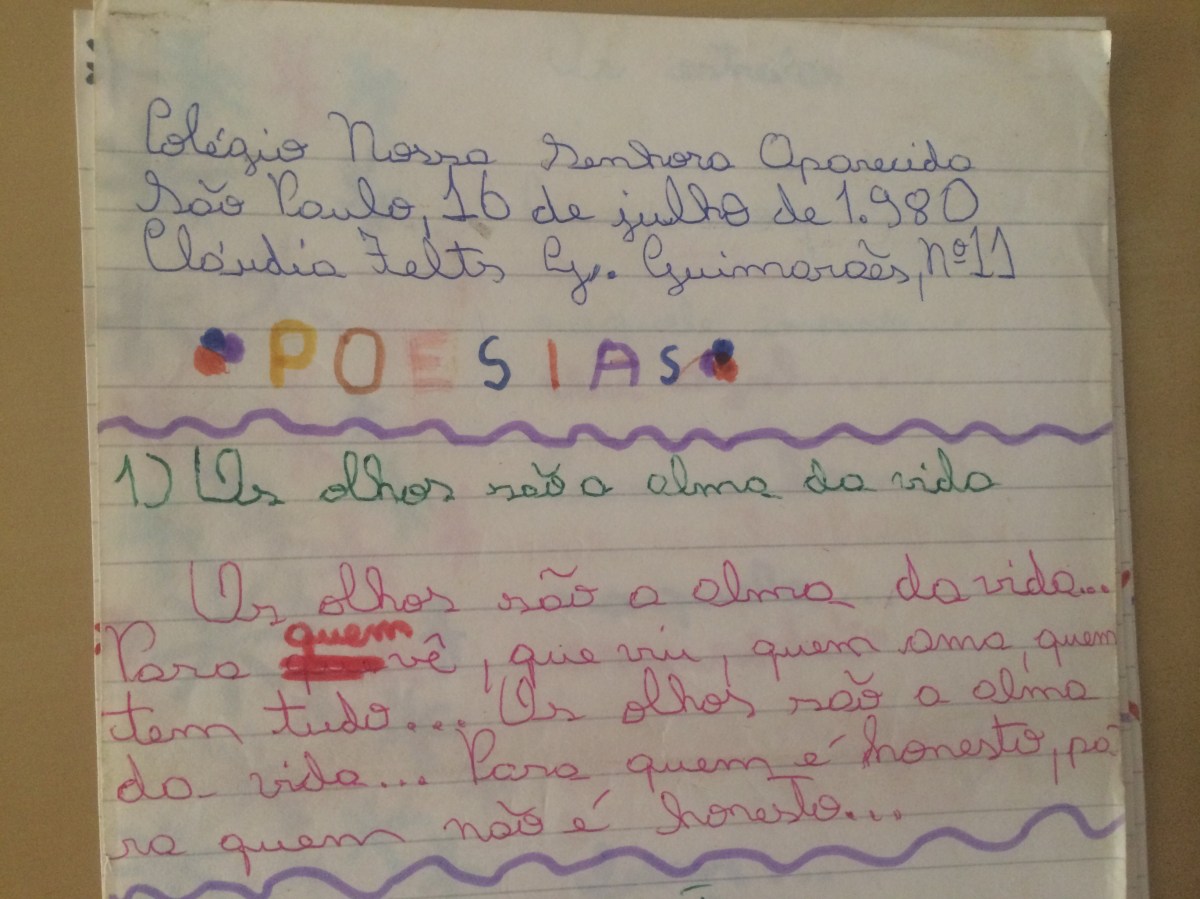 Colégio Nossa Senhora Aparecida
São Paulo, 16 de julho de 1.980
Cláudia Feltz G. Guimarães, Nº 11
POESIAS
1) Os olhos são a alma da vida
Os olhos são a alma da vida...
Para quem vê, que viu, quem ama, quem
tem tudo... Os olhos são a alma
da vida... Para quem é honesto, pa
ra quem não é honesto...